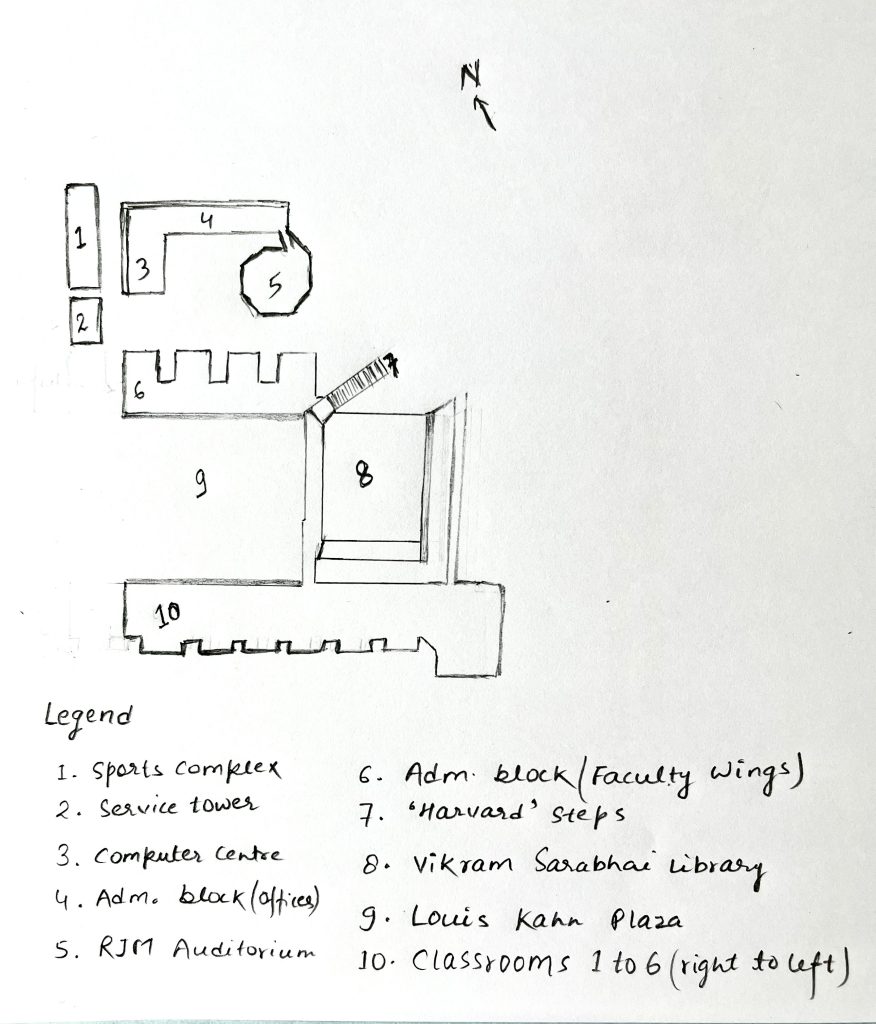 N
1
4
3
5
2
6
7
9
8
10
Legend
1. Sports Complex
2. Service tower
3. Computer Centre
4. Adm. block (offices)
5. RJM Auditorium
6. Adm. block (Faculty wings)
7. 'Harvard' steps
8. Vikram Sarabhai Library
9. Louis Kahn Plaza
10. Classrooms 1 to 6 (right to left)